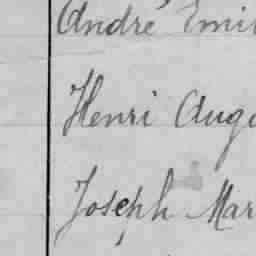 André Emi
Henri Aug
Joseph Mar